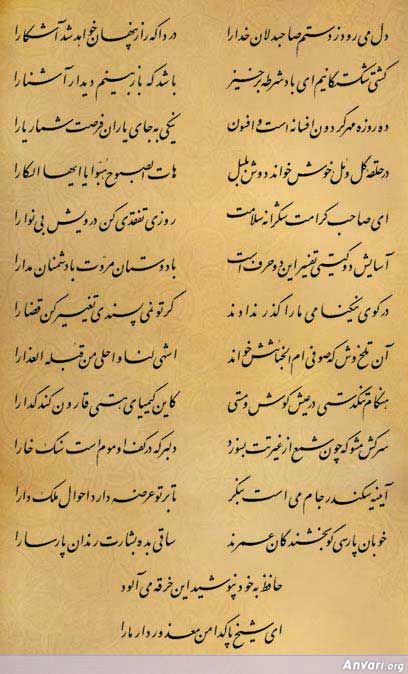 دل می رود ز دستم صاحبدلان خدا را دردا که راز پنهان خواهد شد آشکارا
کشتی شکستگانیم ای باد شرطه برخیز باشد که باز بینیم دیدار آشنا را
ده روزه مهر گردون افسانه است و افسون نیکی به جای یاران فرصت شمار یارا
در حلقه گل و مل خوش خواند دوش بلبل هات الصبوح هبوا یا ایها السکارا
ای صاحب کرامت شکرانه سلامت روزی تفقدی کن درویش بی نوا را
آسایش دو گیتی تفسیر این دو حرف است با دوستان مروت با دشمنان مدارا
در کوی نیکنامی ما را گذر ندادند گر تو نمی پسندی تغییر کن قضا را
آن تلخ وش که صوفی ام الخبائثش خواند اشهی لنا و احلی من قبله العذارا
هنگام تنگدستی در عیش کوش و مستی کاین کیمیای هستی قارون کند گدا را
سرکش مشو که چون شمع از غیرتت بسوزد دلبر که در کف او موم است سنگ خارا
آینه سکندر جام می است بنگر تا بر تو عرضه دارد احوال ملک دارا
خوبان پارسی گو بخشندگان عمرند ساقی بده بشارت رندان پارسا را
حافظ به خود نپوشید این خرقه می آلود
ای شیخ پاکدامن معذور دار ما را
Anvari.org